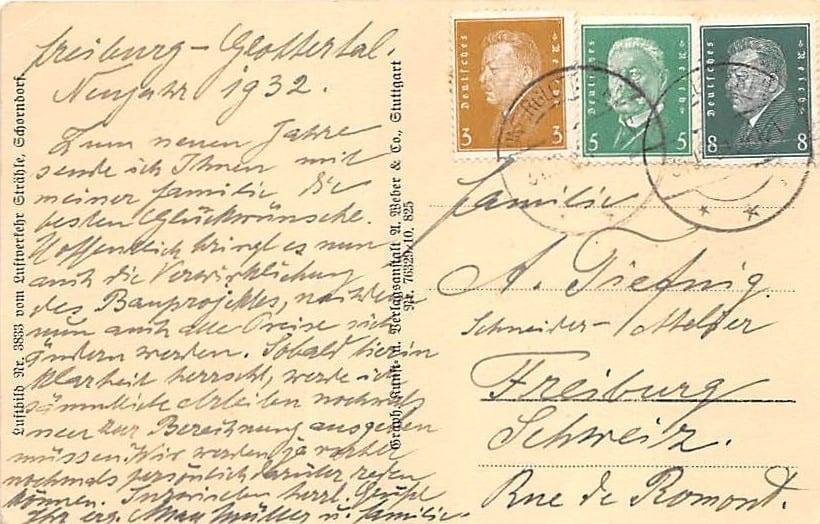 Freiburg-Glottertal.
Neujahr 1932.
Zum neuen Jahre
sende ich Ihnen mit
meiner Familie die
besten Glückwünsche.
Hoffentlich bringt es nun
auch die Verwirklichung
des Bauprojektes, nachdem
nun auch alle Preise sich
ändern werden. Sobald hierin
Klarheit herrscht, werde ich
sämmtliche Arbeiten nochmals
neu zur Berechnung ausgeben
müssen. Wir werden ja vorher
nochmals persönlich darüber reden
können. Inzwischen herzl. Grüße
Ihr erg. Max Müller u. Familie.
Luftbild Nr. 3833 vom Luftverkehr Strähle, Schorndorf.
Graph. Kunst- u. Verlagsanstalt A. Weber & Co., Stuttgart
Nr. 76329/10, 825
Deutsches Reich
3 3
Deutsches Reich
5 5
Deutsches Reich
8 8
Familie
A. Tiefnig
Schneider-Atelier
Freiburg
Schweiz.
Rue de Romont.